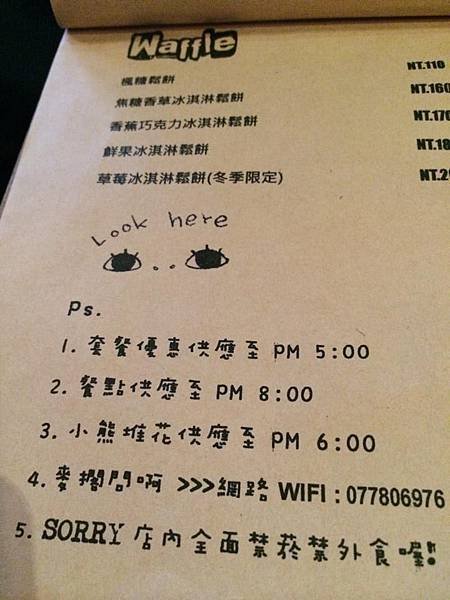 Waffle
楓糖鬆餅 NT.110
焦糖香草冰淇淋鬆餅 NT.160
香蕉巧克力冰淇淋鬆餅 NT.170
鮮果冰淇淋鬆餅 NT.18
草莓冰淇淋鬆餅(冬季限定) NT.2
Look here
Ps.
1. 套餐優惠供應至 PM 5:00
2. 餐點供應至 PM 8:00
3. 小熊堆花供應至 PM 6:00
4. 麥擱問啊 >>>網路 WIFI : 077806976
5. SORRY 店內全面禁菸禁外食喔!